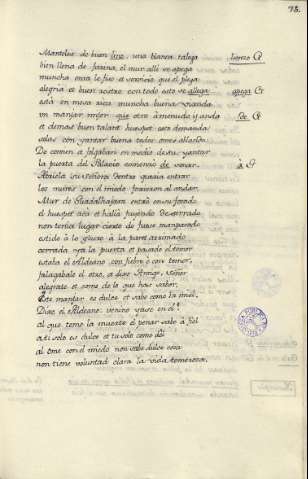 75.
Manteles de buen lino, una blanca talega
bien llena de farina, el mur alli se apega
muncha onra le fizo e servicio que él plega
alegria et buen rostro con todo esto se allega
está en mesa rica muncha buena vianda
un manjar mejor que otro à menudo y anda
et demas buen talant huesped esto demanda
solas con yantar buena todos omes ablanda
Do comen e folgaban en medio de su yantar
la puerta del Palacio comenzó de sonar
Abriela su señora dentro queria entrar
los mures con el miedo foxieron al andar
Mur de Guadalhajara entró en su forado
el huesped acá et hallá fuyendo deserrado
non tenia lugar cierto do fuese manparado
estido á lo escuro á la paret arrimado
cerrada ya la puerta et pasado el temor
estaba el Aldeano con fiebre e con temor
falagabale el otro, e dise Amigo, Señor
alegrate et come de lo que has sabor.
Este manjar es dulce et sabe como la miel
Dixo el Aldeano: venino yase en él
al que teme la muerte el panar sabe á fiel
á ti solo es dulce et tu solo come dél
al ome con el miedo non sabe dulce cosa
non tiene voluntad clara la vida temerosa
lienzo G
apega G
de G
à G